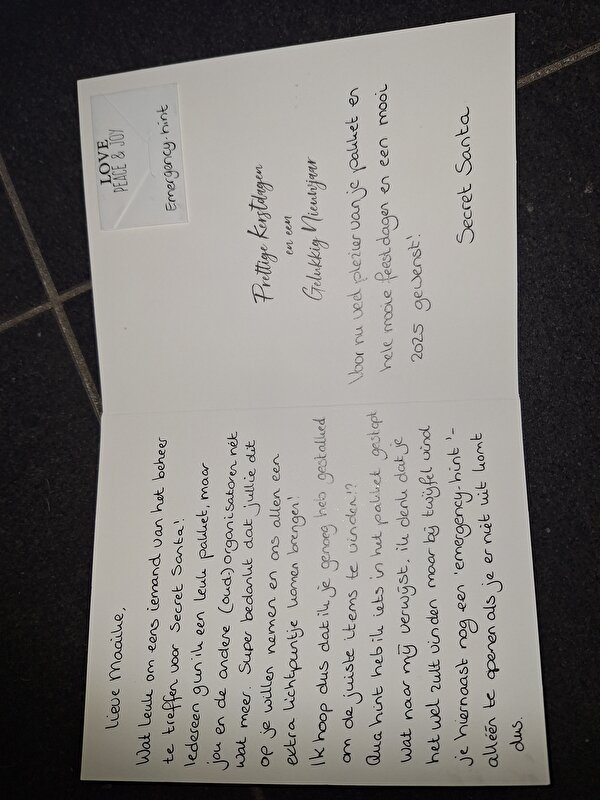 Lieve Maaike,
Wat leuk om eens iemand van het beheer
te treffen voor Secret Santa!
Iedereen gun ik een leuk pakket, maar
jou en de andere (oud-)organisatoren nét
wat meer. Super bedankt dat jullie dit
op je willen nemen en ons allen een
extra lichtpuntje komen brengen!
Ik hoop dus dat ik je genoeg heb gestalked
om de juiste items te vinden!?
Qua hint heb ik iets in het pakket gestopt
wat naar mij verwijst, ik denk dat je
het wel zult vinden maar bij twijfel vind
je hiernaast nog een 'emergency-hint' -
alléén te openen als je er niet uit komt
dus.
LOVE
PEACE & JOY
Emergency-hint
Prettige Kerstdagen
en een
Gelukkig Nieuwjaar
Voor nu veel plezier van je pakket en
hele mooie feestdagen en een mooi
2025 gewenst!
Secret Santa